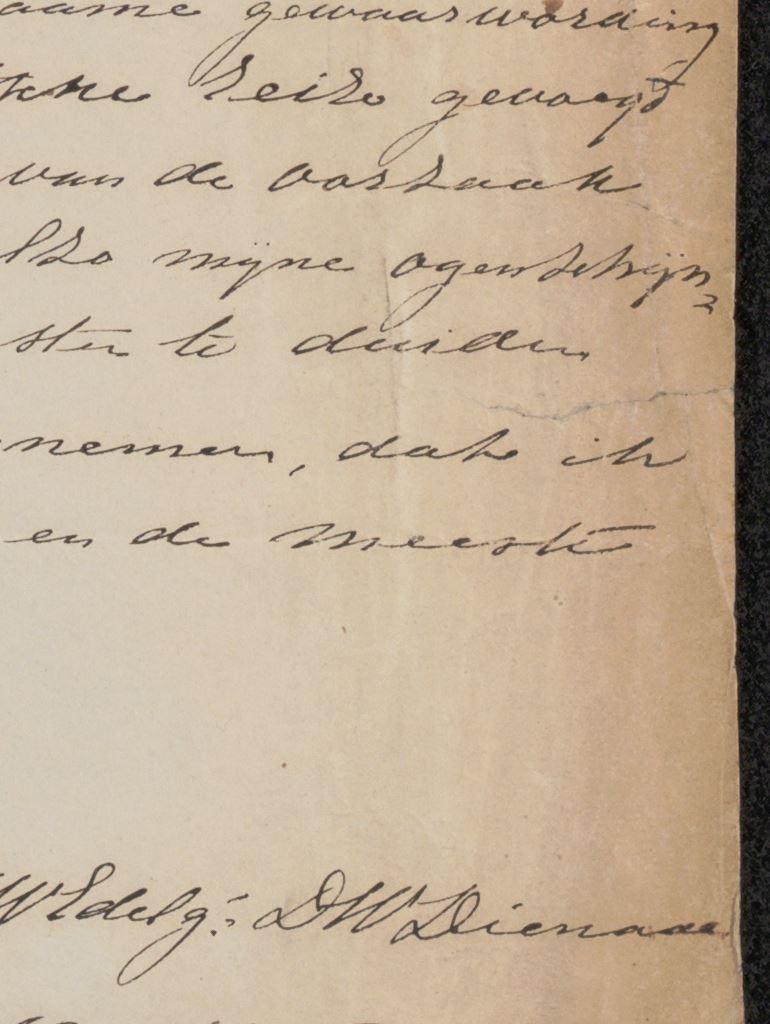 aame gewaarwording
feite gevoegd
van de oorzaak
mijne ogenschijn=
ster te duiden
nemen, dat ik
en de meeste
WEdelgr. DWDienaar